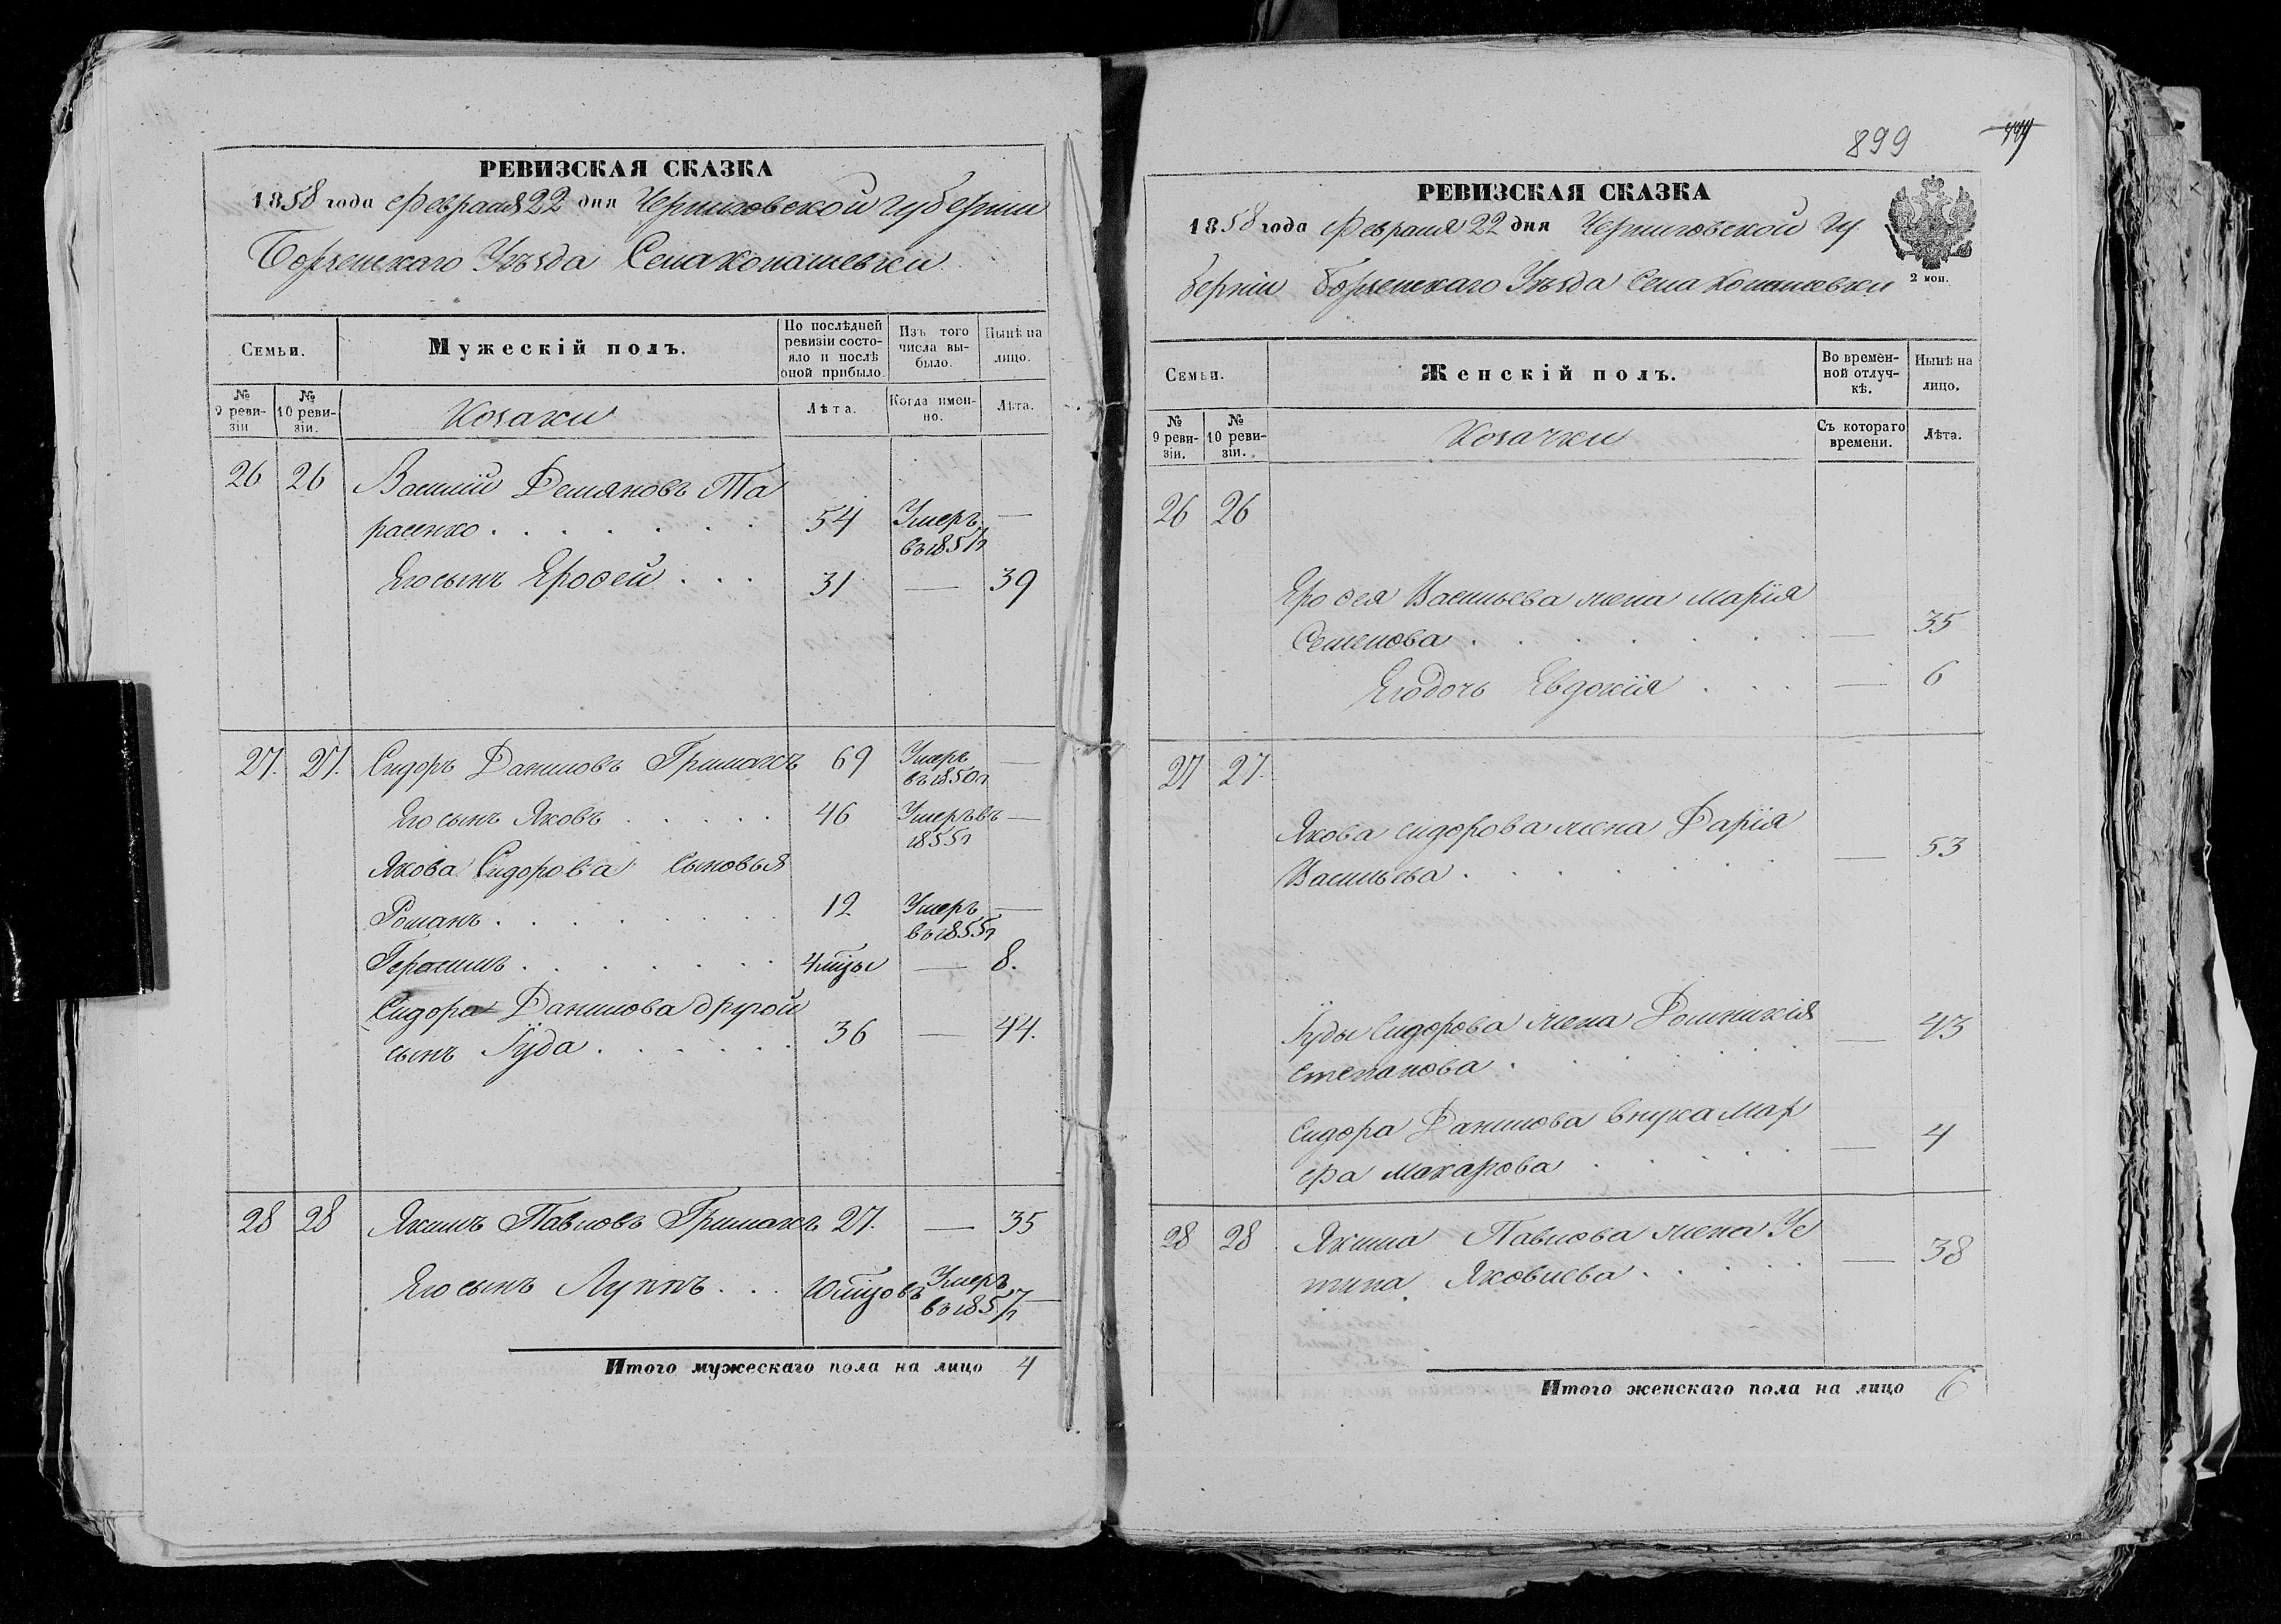 РЕВИЗСКАЯ СКАЗКА
1858 года Февраля 22 дня Черниговской губерніи
Борзенскаго Уѣзда Села Копашевки
Семьи.
Мужескій полъ.
По послѣдней ревизіи состояло и послѣ оной прибыло.
Изъ того числа выбыло.
Нынѣ на лицо.
№ 9 ревизіи
№ 10 ревизіи.
Козаки
Лѣта.
Когда именно.
Лѣта.
26 26 Василій Демяновъ Та
расенко . . . . . . . 54 Умеръ —
въ 1857 г
Его сынъ Ерофей . . . 31 — 39
27. 27. Сидоръ Даниловъ Гримачъ 69 Умеръ —
въ 1850 г
Его сынъ Яковъ . . . . . 46 Умеръ въ —
1855 г
Якова Сидорова сыновья
Романъ . . . . . . . . 12 Умеръ —
въ 1855 г
Герасимъ . . . . . . . 4 мѣцы — 8.
Сидора Данилова другой
сынъ Іуда . . . . . . 36 — 44.
28 28 Якимъ Павловъ Гримачъ 27. — 35
Его сынъ Луппъ . . . 10 мѣцовъ Умеръ
въ 1857 г —
Итого мужескаго пола на лицо 4
899
РЕВИЗСКАЯ СКАЗКА
1858 года Февраля 22 дня Черниговской гу
берніи Борзенскаго Уѣзда Села Копашевки
2 коп.
Семьи.
Женскій полъ.
Во временной отлучкѣ.
Нынѣ на лицо.
№ 9 ревизіи.
№ 10 ревизіи.
Козачки
Съ котораго времени.
Лѣта.
26 26
Ерофея Васильева жена Марія
Семенова . . . . . . — 35
Его дочь Евдокія . . . — 6
27 27.
Якова Сидорова жена Дарія
Васильева . . . . . . — 53
Іуды Сидорова жена Домникія — 43
Степанова . . . . . .
Сидора Данилова внука Мар — 4
фа Макарова . . . . .
28 28 Якима Павлова жена Ус
тина Яковлева . . . . . — 38
Итого женскаго пола на лицо 6